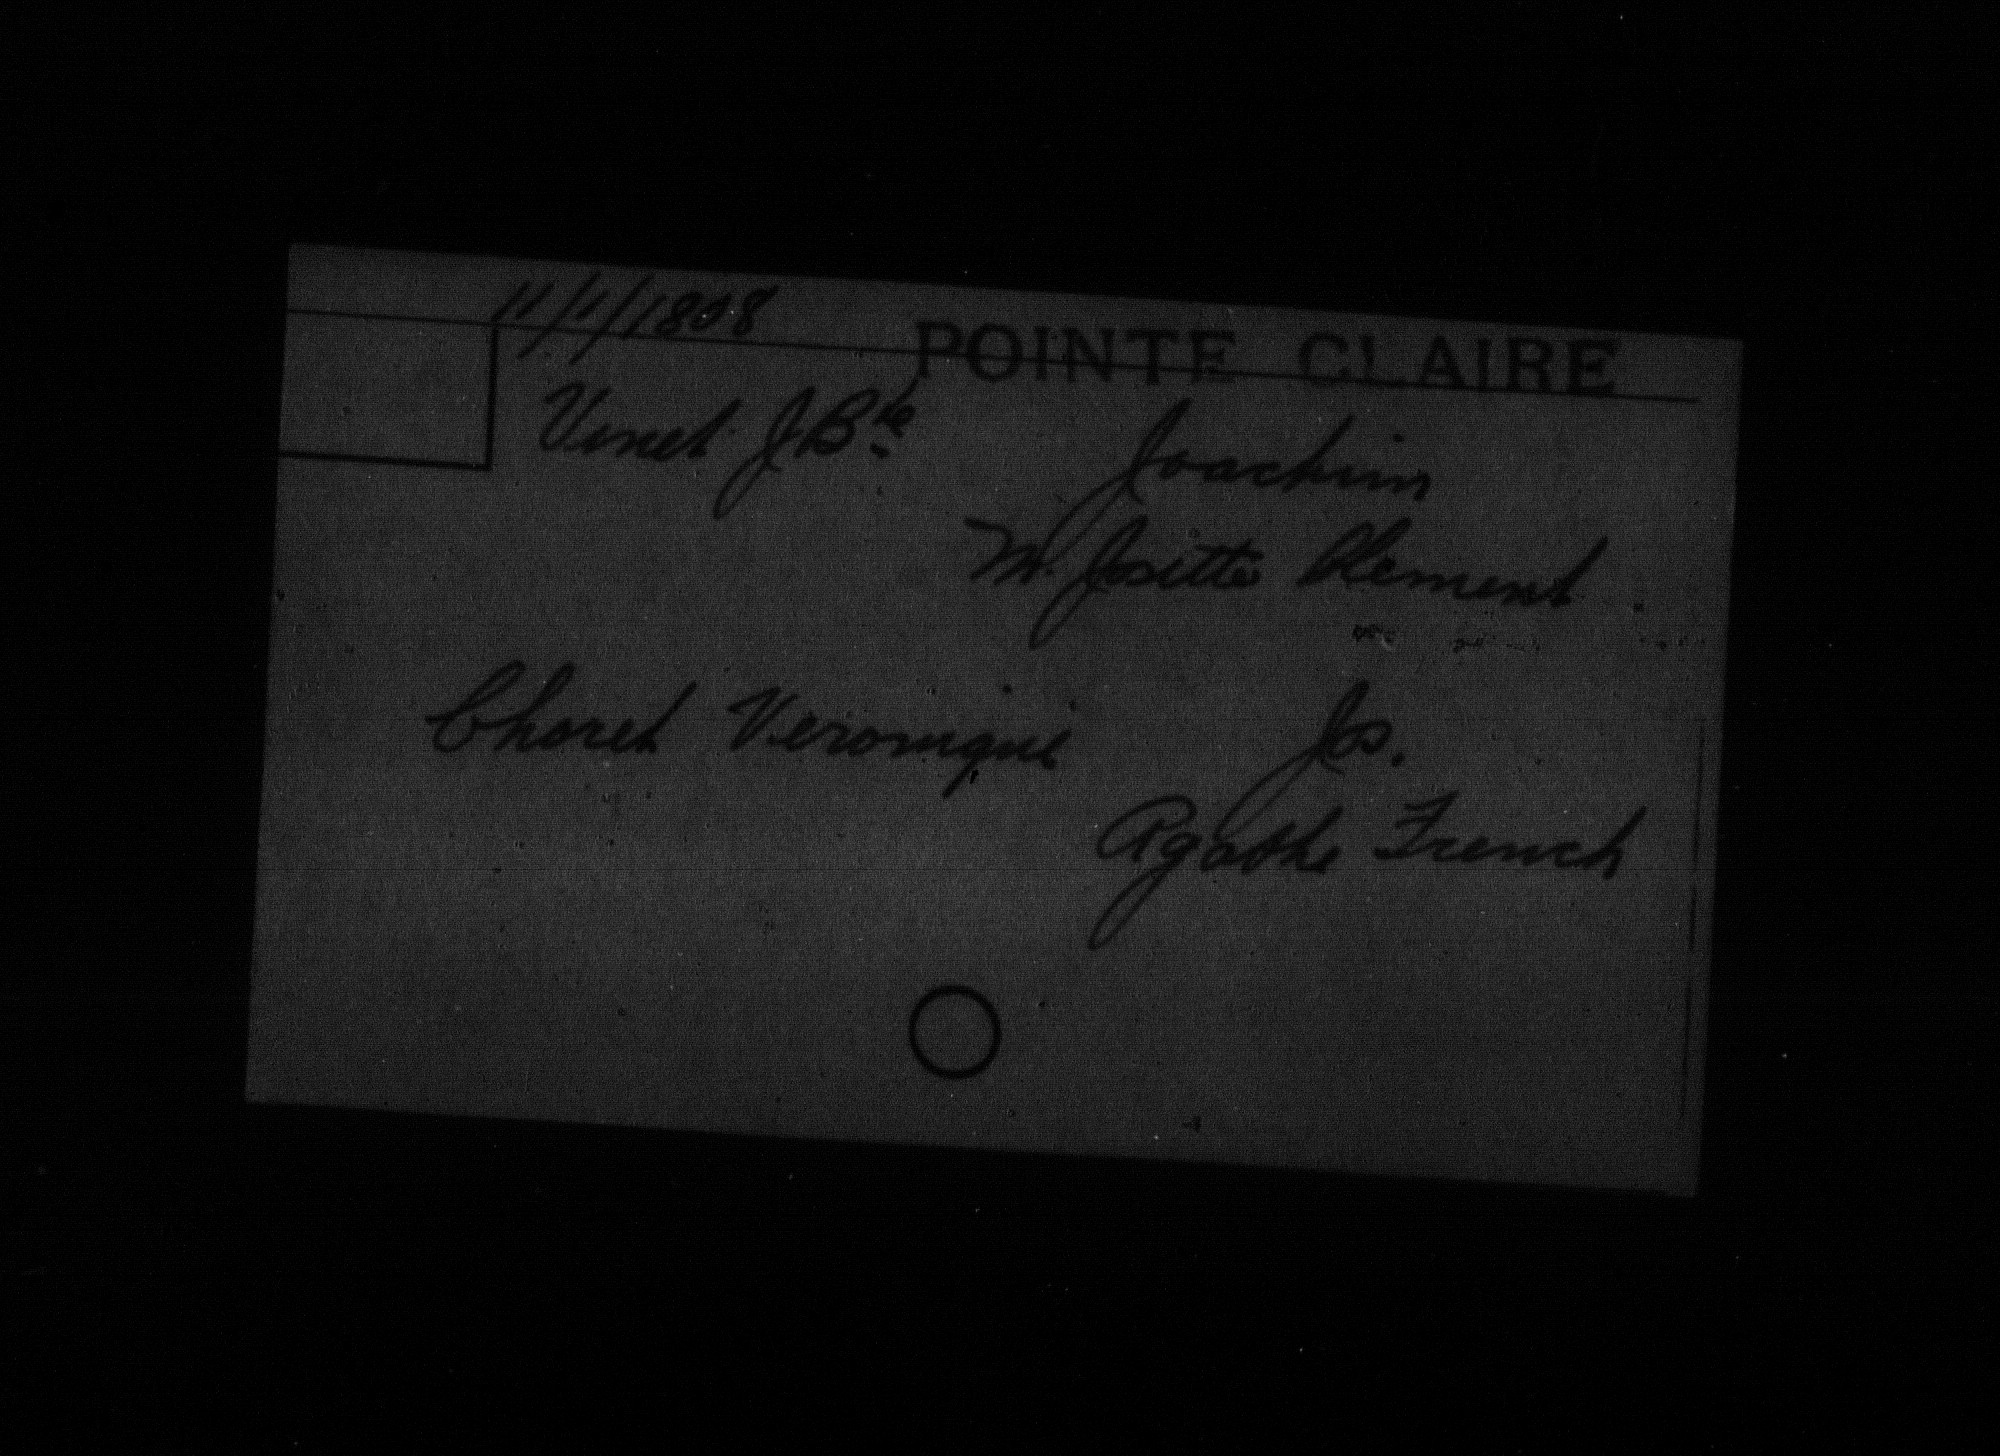 11/1/1808 POINTE CLAIRE
Vinet J Bte Joachim
M. Josette Clement
Choret Veronique Js.
Agathe French